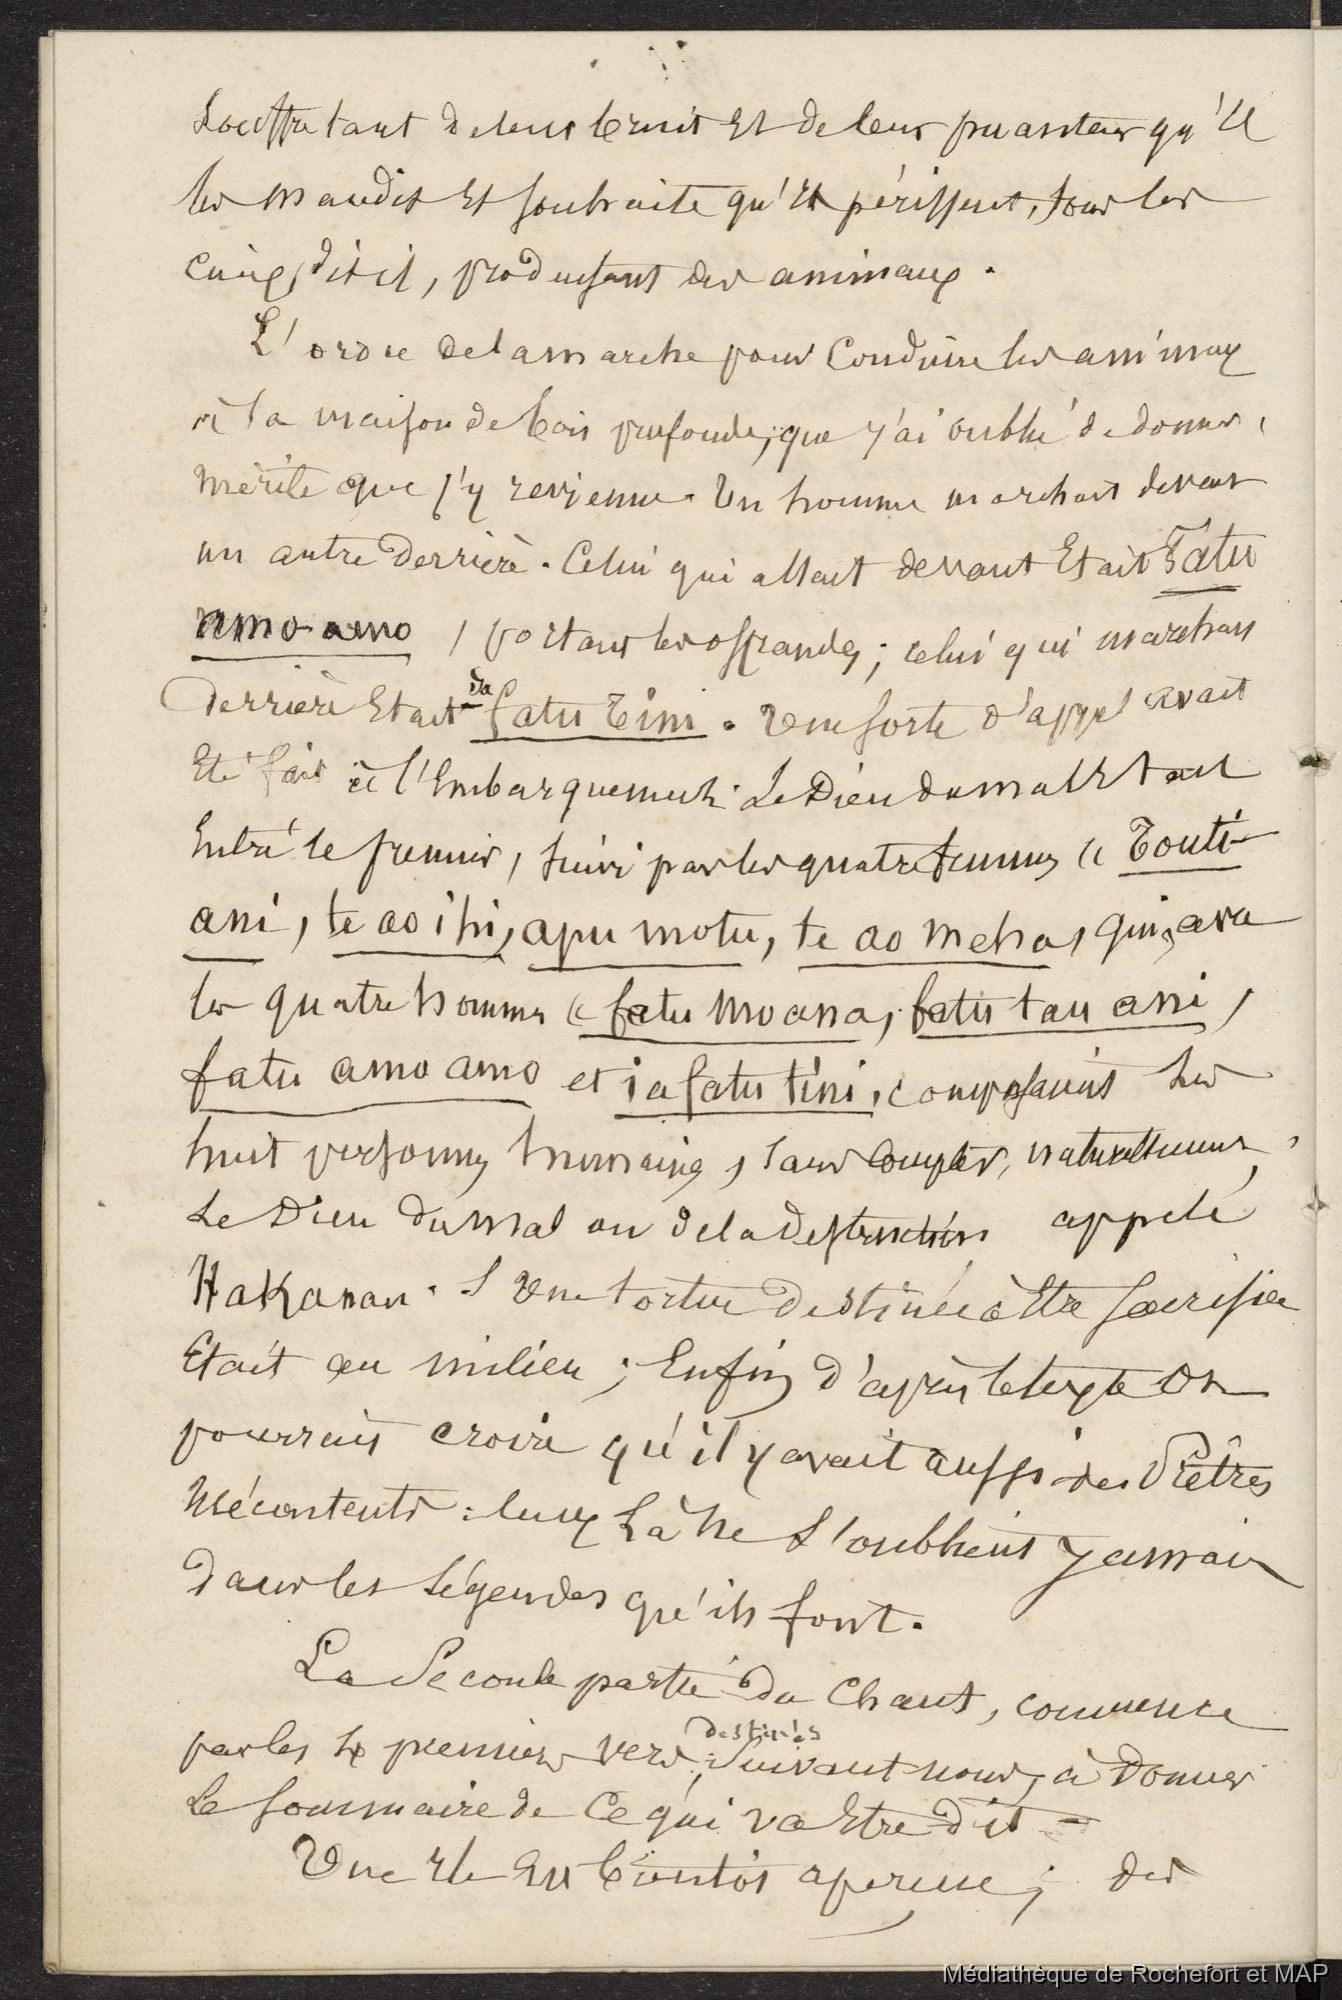 souffre tant de leur bruit et de leur puanteur qu'il
les maudit et souhaite qu'il périssent, tous les
cuirs, dit il, produisant des animaux.
L'ordre de la marche pour conduire les animaux
à la maison de bois profonde, que j'ai oublié de donner,
mérite que j'y revienne. Un homme marchait devant
un autre derrière. Celui qui allait devant Etait Fatu
amo amo, portant les offrandes; celui qui marchait
derrière Etait Ia fatu tini. Une sorte d'appel avait
Eté fait à l'Embarquement. Le Dieu du mal Etait
Entré le premier, suivi par les quatre femmes (( Touti
ani, te ao ihi, apu motu, te ao meha, qui, avec
les quatre hommes (( fatu moana, fatu tau ani,
fatu amo amo et ia fatu tini, composaient les
huit personnes humaines, sans compter, naturellement,
Le Dieu du mal ou de la Destruction appelé
Hakanau. Une tortue destinée à Etre sacrifiée
Etait au milieu; Enfin d'après le texte on
pourrait croire qu'il y avait aussi des Prêtres
mécontents: ceux là ne s'oublient jamais
dans les légendes qu'ils font.
La Seconde partie du Chant, commence
par les 4 premiers vers, suivant nous, destinés à Donner
Le sommaire de Ce qui va Etre dit -
Une Ile Est bientôt aperçue; des
Médiathèque de Rochefort et MAP